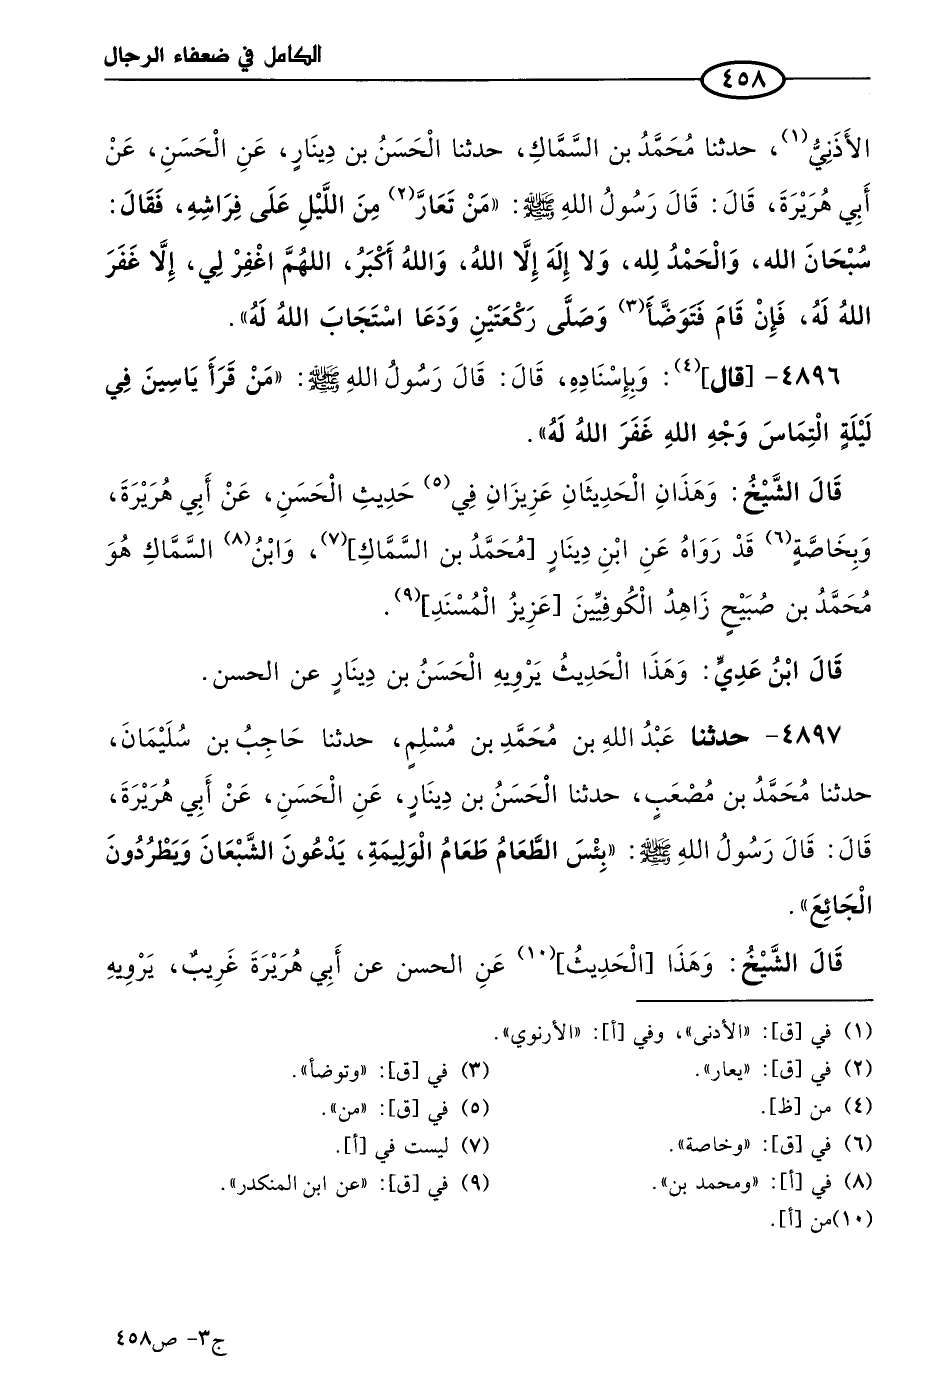 الكامل في ضعفاء الرجال
٤٥٨
الأَذَنِيُّ(١)، حدثنا مُحَمَّدُ بن السَّمَّاكِ، حدثنا الْحَسَنُ بن دِينَارٍ، عَنِ الْحَسَنِ، عَنْ
أَبِي هُرَيْرَةَ، قَالَ: قَالَ رَسُولُ اللهِ ﷺ: «مَنْ تَعَارَّ(٢) مِنَ اللَّيْلِ عَلَى فِرَاشِهِ، فَقَالَ:
سُبْحَانَ الله، وَالْحَمْدُ لله، وَلا إِلَهَ إِلَّا اللهُ، وَاللهُ أَكْبَرُ، اللهُمَّ اغْفِرْ لِي، إِلَّا غَفَرَ
اللهُ لَهُ، فَإِنْ قَامَ فَتَوَضَّأَ(٣) وَصَلَّى رَكْعَتَيْنِ وَدَعَا اسْتَجَابَ اللهُ لَهُ».
٤٨٩٦- [قال](٤): وَبِإِسْنَادِهِ، قَالَ: قَالَ رَسُولُ اللهِ ﷺ: «مَنْ قَرَأَ يَاسِينَ فِي
لَيْلَةٍ الْتِمَاسَ وَجْهِ اللهِ غَفَرَ اللهُ لَهُ».
قَالَ الشَّيْخُ: وَهَذَانِ الْحَدِيثَانِ عَزِيزَانِ فِي(٥) حَدِيثِ الْحَسَنِ، عَنْ أَبِي هُرَيْرَةَ،
وَبِخَاصَّةٍ(٦) قَدْ رَوَاهُ عَنِ ابْنِ دِينَارٍ [مُحَمَّدُ بن السَّمَّاكِ](٧)، وَابْنُ(٨) السَّمَّاكِ هُوَ
مُحَمَّدُ بن صُبَيْحٍ زَاهِدُ الْكُوفِيِّينَ [عَزِيزُ الْمُسْنَدِ](٩).
قَالَ ابْنُ عَدِيٍّ: وَهَذَا الْحَدِيثُ يَرْوِيهِ الْحَسَنُ بن دِينَارٍ عن الحسن.
٤٨٩٧- حدثنا عَبْدُ اللهِ بن مُحَمَّدِ بن مُسْلِمٍ، حدثنا حَاجِبُ بن سُلَيْمَانَ،
حدثنا مُحَمَّدُ بن مُصْعَبٍ، حدثنا الْحَسَنُ بن دِينَارٍ، عَنِ الْحَسَنِ، عَنْ أَبِي هُرَيْرَةَ،
قَالَ: قَالَ رَسُولُ اللهِ ﷺ: «بِئْسَ الطَّعَامُ طَعَامُ الْوَلِيمَةِ، يَدْعُونَ الشَّبْعَانَ وَيَطْرُدُونَ
الْجَائِعَ».
قَالَ الشَّيْخُ: وَهَذَا [الْحَدِيثُ](١٠) عَنِ الحسن عن أَبِي هُرَيْرَةَ غَرِيبٌ، يَرْوِيهِ
(١) في [ق]: «الأدنى»، وفي [أ]: «الأرنوي».
(٢) في [ق]: «يعار». (٣) في [ق]: «وتوضأ».
(٤) من [ظ]. (٥) في [ق]: «من».
(٦) في [ق]: «وخاصة». (٧) ليست في [أ].
(٨) في [أ]: «ومحمد بن». (٩) في [ق]: «عن ابن المنكدر».
(١٠)من [أ].
ج٣- ص٤٥٨